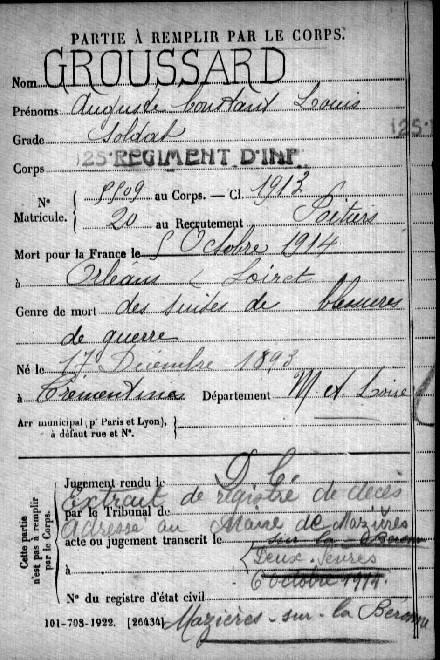 PARTIE À REMPLIR PAR LE CORPS.
Nom GROUSSARD
Prénoms Auguste Constant Louis
Grade Soldat
125
Corps 125 REGIMENT D'INF.
N° Matricule. { 5509 au Corps. — Cl. 1913
20 au Recrutement Poitiers
Mort pour la France le 5 Octobre 1914
à Orléans (Loiret
Genre de mort des suites de blessures
de guerre
Né le 17 Décembre 1893
à Trémentines Département M et Loire
Arr municipal (p' Paris et Lyon), à défaut rue et N°.
Cette partie n'est pas à remplir par le Corps.
Jugement rendu le D. C.
Extrait de registre de décès
par le Tribunal de
adressé au Maire de Mazières
acte ou jugement transcrit le sur la Béronne
Deux-Sèvres
à 6 octobre 1914
N° du registre d'état civil
101-708-1922. [26434] Mazières-sur-la Béronne